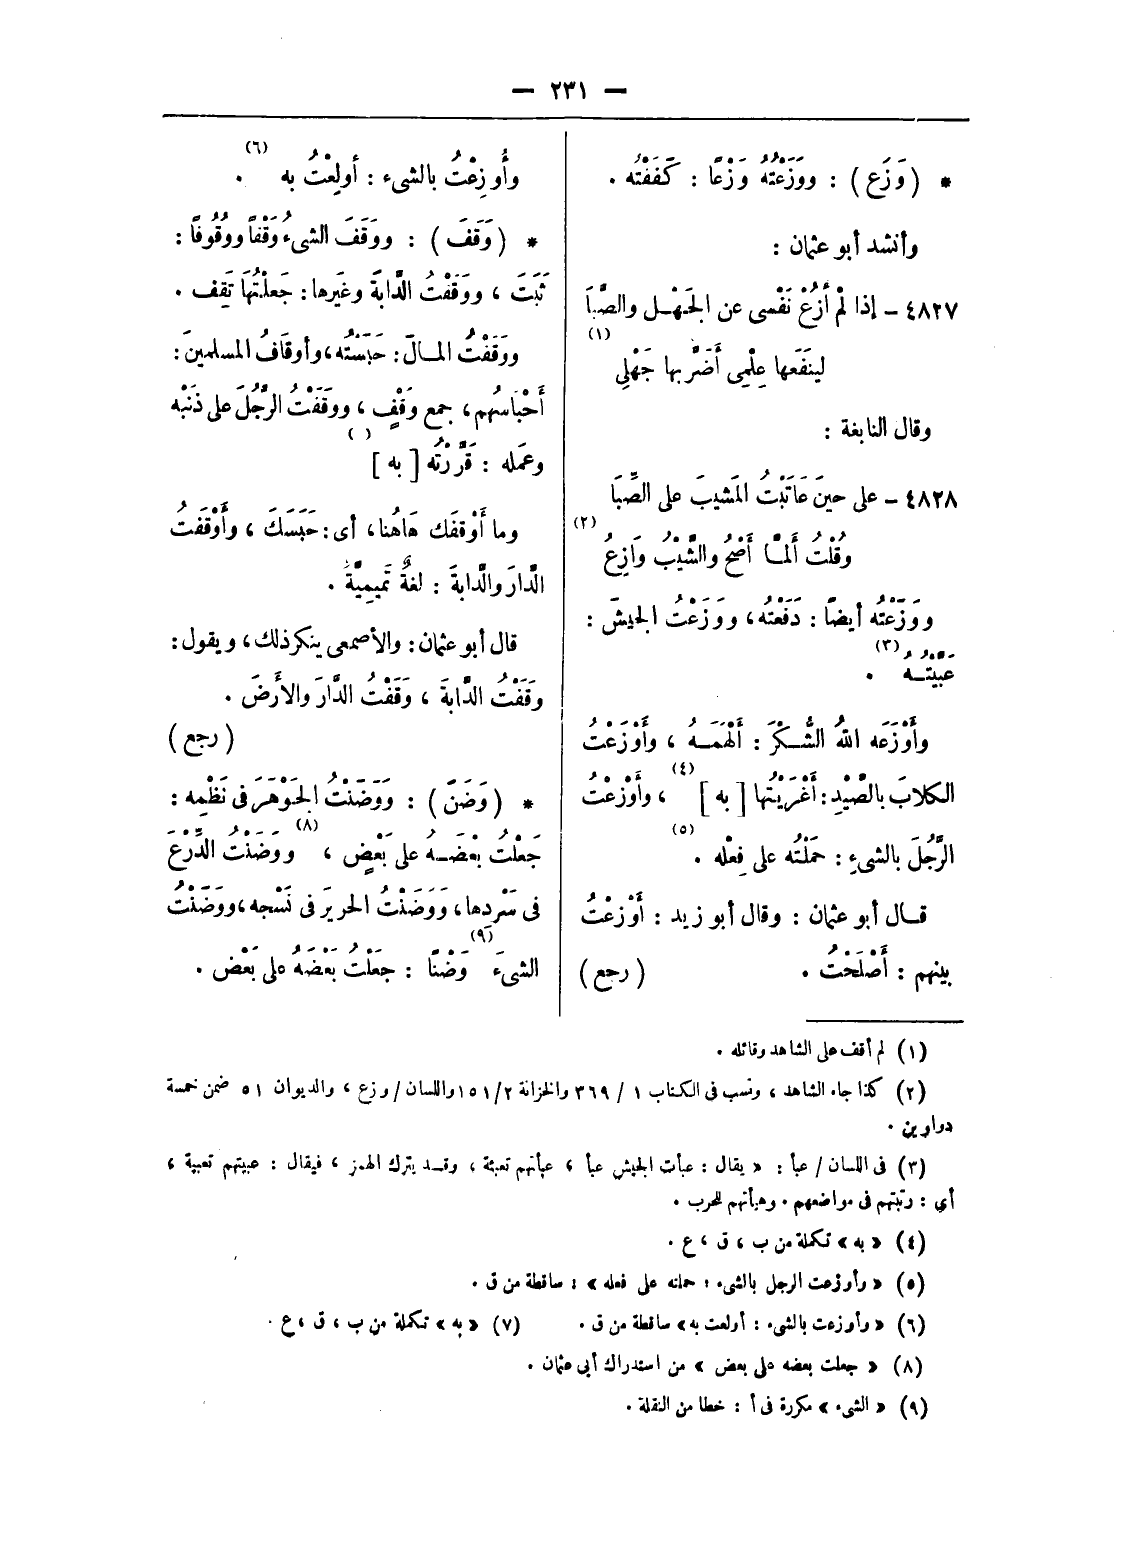 — ٢٣١ —
* ( وَزَع ) : ووَزَعْتُهُ وَزْعًا : كَفَفْتُه .
وأنشد أبو عثمان :
٤٨٢٧ – إذا لم أَزَعْ نَفْسى عن الجَهْل والصِّبَا
لينفَعها عِلْمِى أضَرَّ بها جَهْلِى (١)
وقال النابغة :
٤٨٢٨ – على حينَ عَاتَبْتُ المَشيبَ على الصِّبَا
وقُلْتُ أَلمَّا أَصْحُ والشَّيْبُ وَازِعُ (٢)
ووَزَعْتُه أيضًا : دَفَعْتُه ، ووَزَعْتُ الجيشَ :
عَبَّيْتُه (٣) .
وأَوْزَعَه اللهُ الشُّكْرَ : أَلْهَمَهُ ، وأَوْزَعْتُ
الكلابَ بالصَّيْدِ : أَغْرَيْتُها [ به ] (٤) ، وأَوْزَعْتُ
الرَّجُلَ بالشىءِ : حَمَلْتُه على فِعْله (٥) .
قال أبو عثمان : وقال أبو زيد : أَوْزَعْتُ
بينهم : أَصْلَحْتُ . ( رجع )
وأُوزِعْتُ بالشىء : أُولِعْتُ به (٦) .
* ( وَقَفَ ) : ووَقَفَ الشىءُ وَقْفًا ووُقُوفًا :
ثَبَتَ ، ووَقَفْتُ الدَّابةَ وغيرها : جَعلْتُهَا تَقِف .
ووَقَفْتُ المالَ : حَبَسْتُه ، وأوقَافُ المسلمينَ :
أَحْبَاسُهم ، جمع وَقْفٍ ، ووَقَفْتُ الرَّجُلَ على ذَنْبه
وعَمَله : قَرَّرْتُه [ به ] ( )
وما أَوْقفَك هَاهُنا ، أى : حَبَسَكَ ، وأَوْقَفتُ
الدَّارَ والدَّابةَ : لغةٌ تَمِيمِيَّةٌ .
قال أبو عثمان : والأصمعى ينكر ذلك ، ويقول :
وَقَفْتُ الدَّابةَ ، وَقَفْتُ الدَّارَ والأَرْضَ .
( رجع )
* ( وَضَنَ ) : وَوَضَنْتُ الجَوْهَرَ فى نَظْمِه :
جَعَلْتُ بَعْضَهُ على بَعْضٍ (٨) ، ووَضَنْتُ الدِّرْعَ
فى سَرْدِها ، ووَضَنْتُ الحريرَ فى نَسْجه ، ووَضَنْتُ
الشىءَ (٩) وَضْنًا : جَعَلْتُ بَعْضَهُ على بَعْض .
(١) لم أقف على الشاهد وقائله .
(٢) كذا جاء الشاهد ، ونسب فى الكتاب ١ / ٣٦٩ والخزانة ٢/ ١٥١ واللسان / وزع ، والديوان ٥١ ضمن خمسة
دواوين .
(٣) فى اللسان / عبأ : « يقال : عبأت الجيش عبأ ، عبأتهم تعبئة ، وقد يترك الهمز ، فيقال : عبيتهم تعبية ،
أي : رتبتهم فى مواضعهم . وهيأتهم للحرب .
(٤) « به » تكملة من ب ، ق ، ع .
(٥) « وأوزعت الرجل بالشىء : حملته على فعله » : ساقطة من ق .
(٦) « وأوزعت بالشىء : أولعت به » ساقطة من ق . (٧) « به » تكملة من ب ، ق ، ع .
(٨) « جعلت بعضه على بعض » من استدراك أبى عثمان .
(٩) « الشىء » مكررة فى أ : خطا من النقلة .